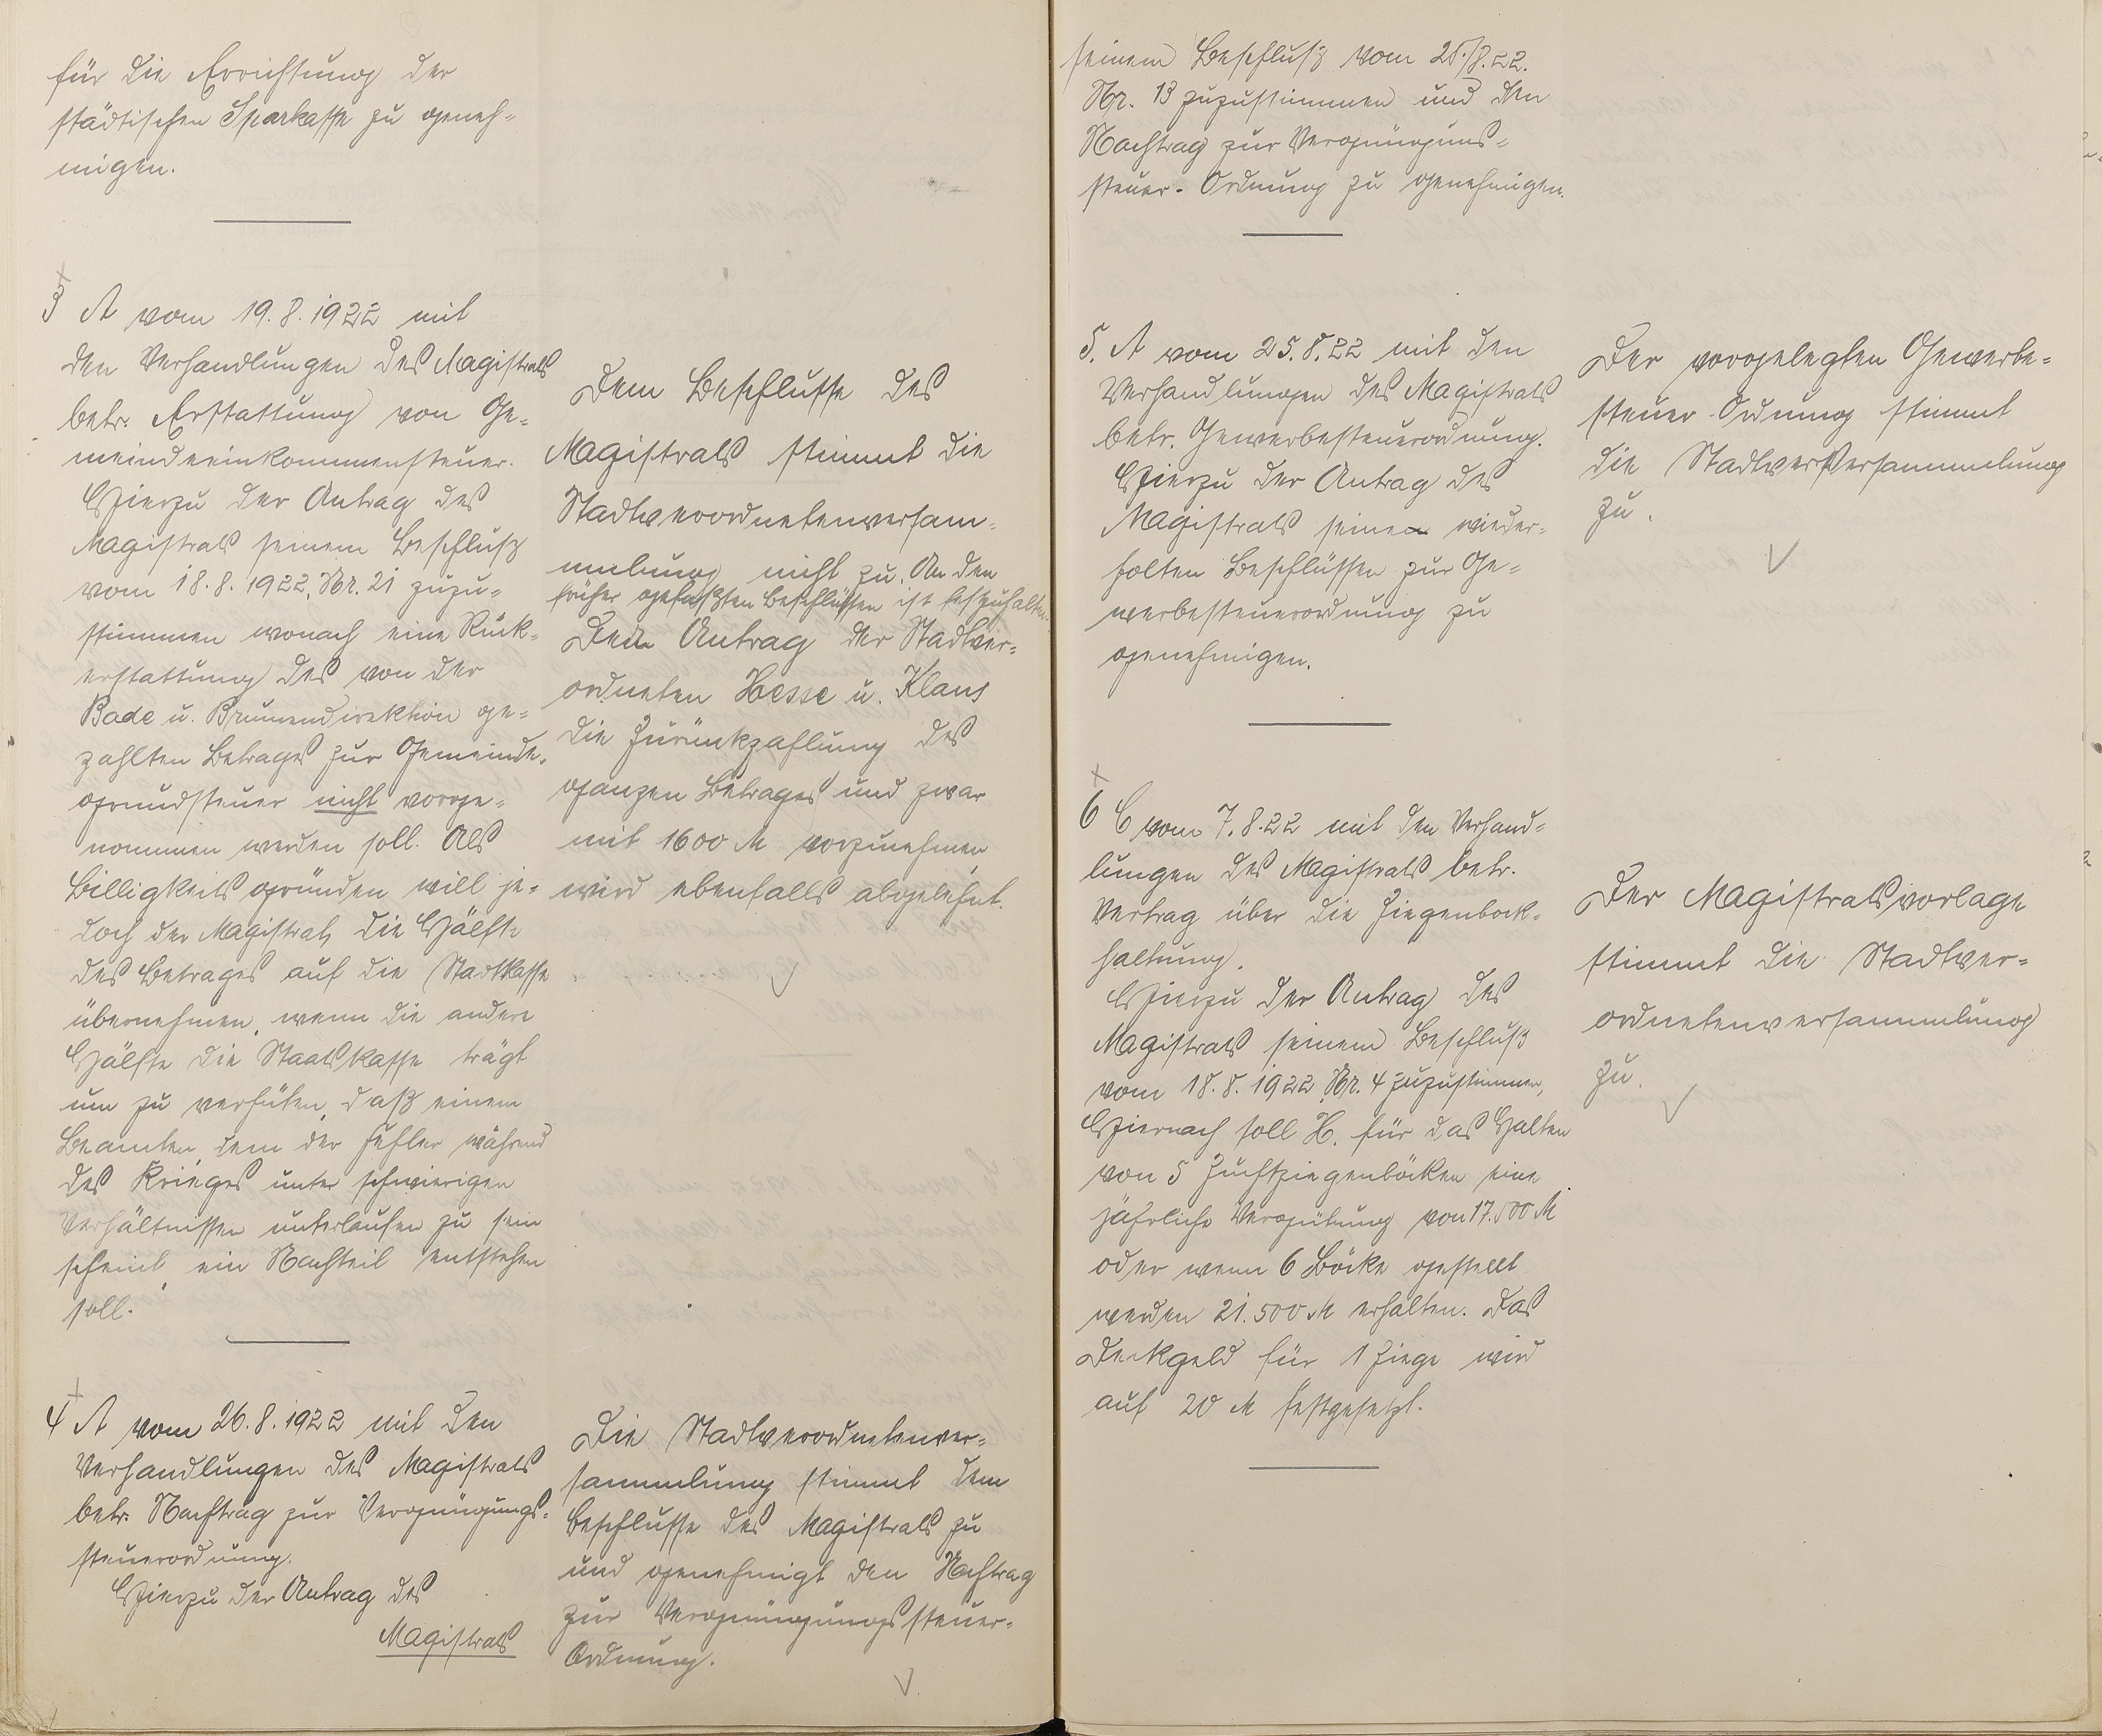 für die Errichtung der
städtischen Sparkasse zu geneh-
migen.
3 A vom 19.8.1922 mit
den Verhandlungen des Magistrats
betr. Erstattung von Ge-
meindeeinkommensteuer.
Hierzu der Antrag des
Magistrats seinem Beschluß
vom 18.8.1922, Nr. 21 zuzu-
stimmen wonach eine Rück-
erstattung des von der
Bade u. Brunnendirektion ge-
zahlten Betrages zur Gemeinde-
grundsteuer nicht vorge-
nommen werden soll. Als
Billigkeitsgründen will je-
doch der Magistrat, die Hälfte
des Betrages auf die Stadtkasse
übernehmen, wenn die andere
Hälfte die Staatskasse trägt
um zu verhüten, daß einem
Beamten, dem der Fehler während
des Krieges unter schwierigen
Verhältnissen unterlaufen zu sein
scheint, ein Nachteil entstehen
soll.
Dem Beschlusse des
Magistrats stimmt die
Stadtverordnetenversam-
mlung nicht zu. An den
früher gefaßten Beschlüssen ist festzuhalten.
Den Antrag der Stadtver-
ordneten Hesse u. Klaus
die Zurückzahlung des
ganzen Betrages und zwar
mit 1600 M vorzunehmen
wird ebenfalls abgelehnt.
4 A vom 26.8.1922 mit den
Verhandlungen des Magistrats
betr. Nachtrag zur Vergnügungs-
steuerordnung.
Hierzu der Antrag des
Magistrats
Die Stadtverordnetenver-
sammlung stimmt dem
Beschlusse des Magistrats zu
und genehmigt den Nachtrag
zur Vergnügungssteuer-
Ordnung.
seinem Beschluß vom 25./8.22.
Nr. 13 zuzustimmen und den
Nachtrag zur Vergnügungs-
steuer-Ordnung zu genehmigen.
5. A vom 25.8.22 mit den
Verhandlungen des Magistrats
betr. Gewerbesteuerordnung.
Hierzu der Antrag des
Magistrats seinen wieder-
holten Beschlüssen zur Ge-
werbesteuerordnung zu
genehmigen.
Der vorgelegten Gewerbe-
steuer-Ordnung stimmt
die Stadtver Versammlung
zu.
6 C vom 7.8.22 mit den Verhand-
lungen des Magistrats betr.
Vertrag über die Ziegenbock-
haltung.
Hierzu der Antrag des
Magistrats seinem Beschluß
vom 18.8.1922, Nr. 4 zuzustimmen,
Hiernach soll H. für das Halten
von 5 Zuchtziegenböcken eine
jährliche Vergütung von 17.500 M
oder wenn 6 Böcke gestellt
werden 21.500 M erhalten. Das
Deckgeld für 1 Ziege wird
auf 20 M festgesetzt.
Der Magistratsvorlage
stimmt die Stadtver-
ordnetenversammlung
zu.